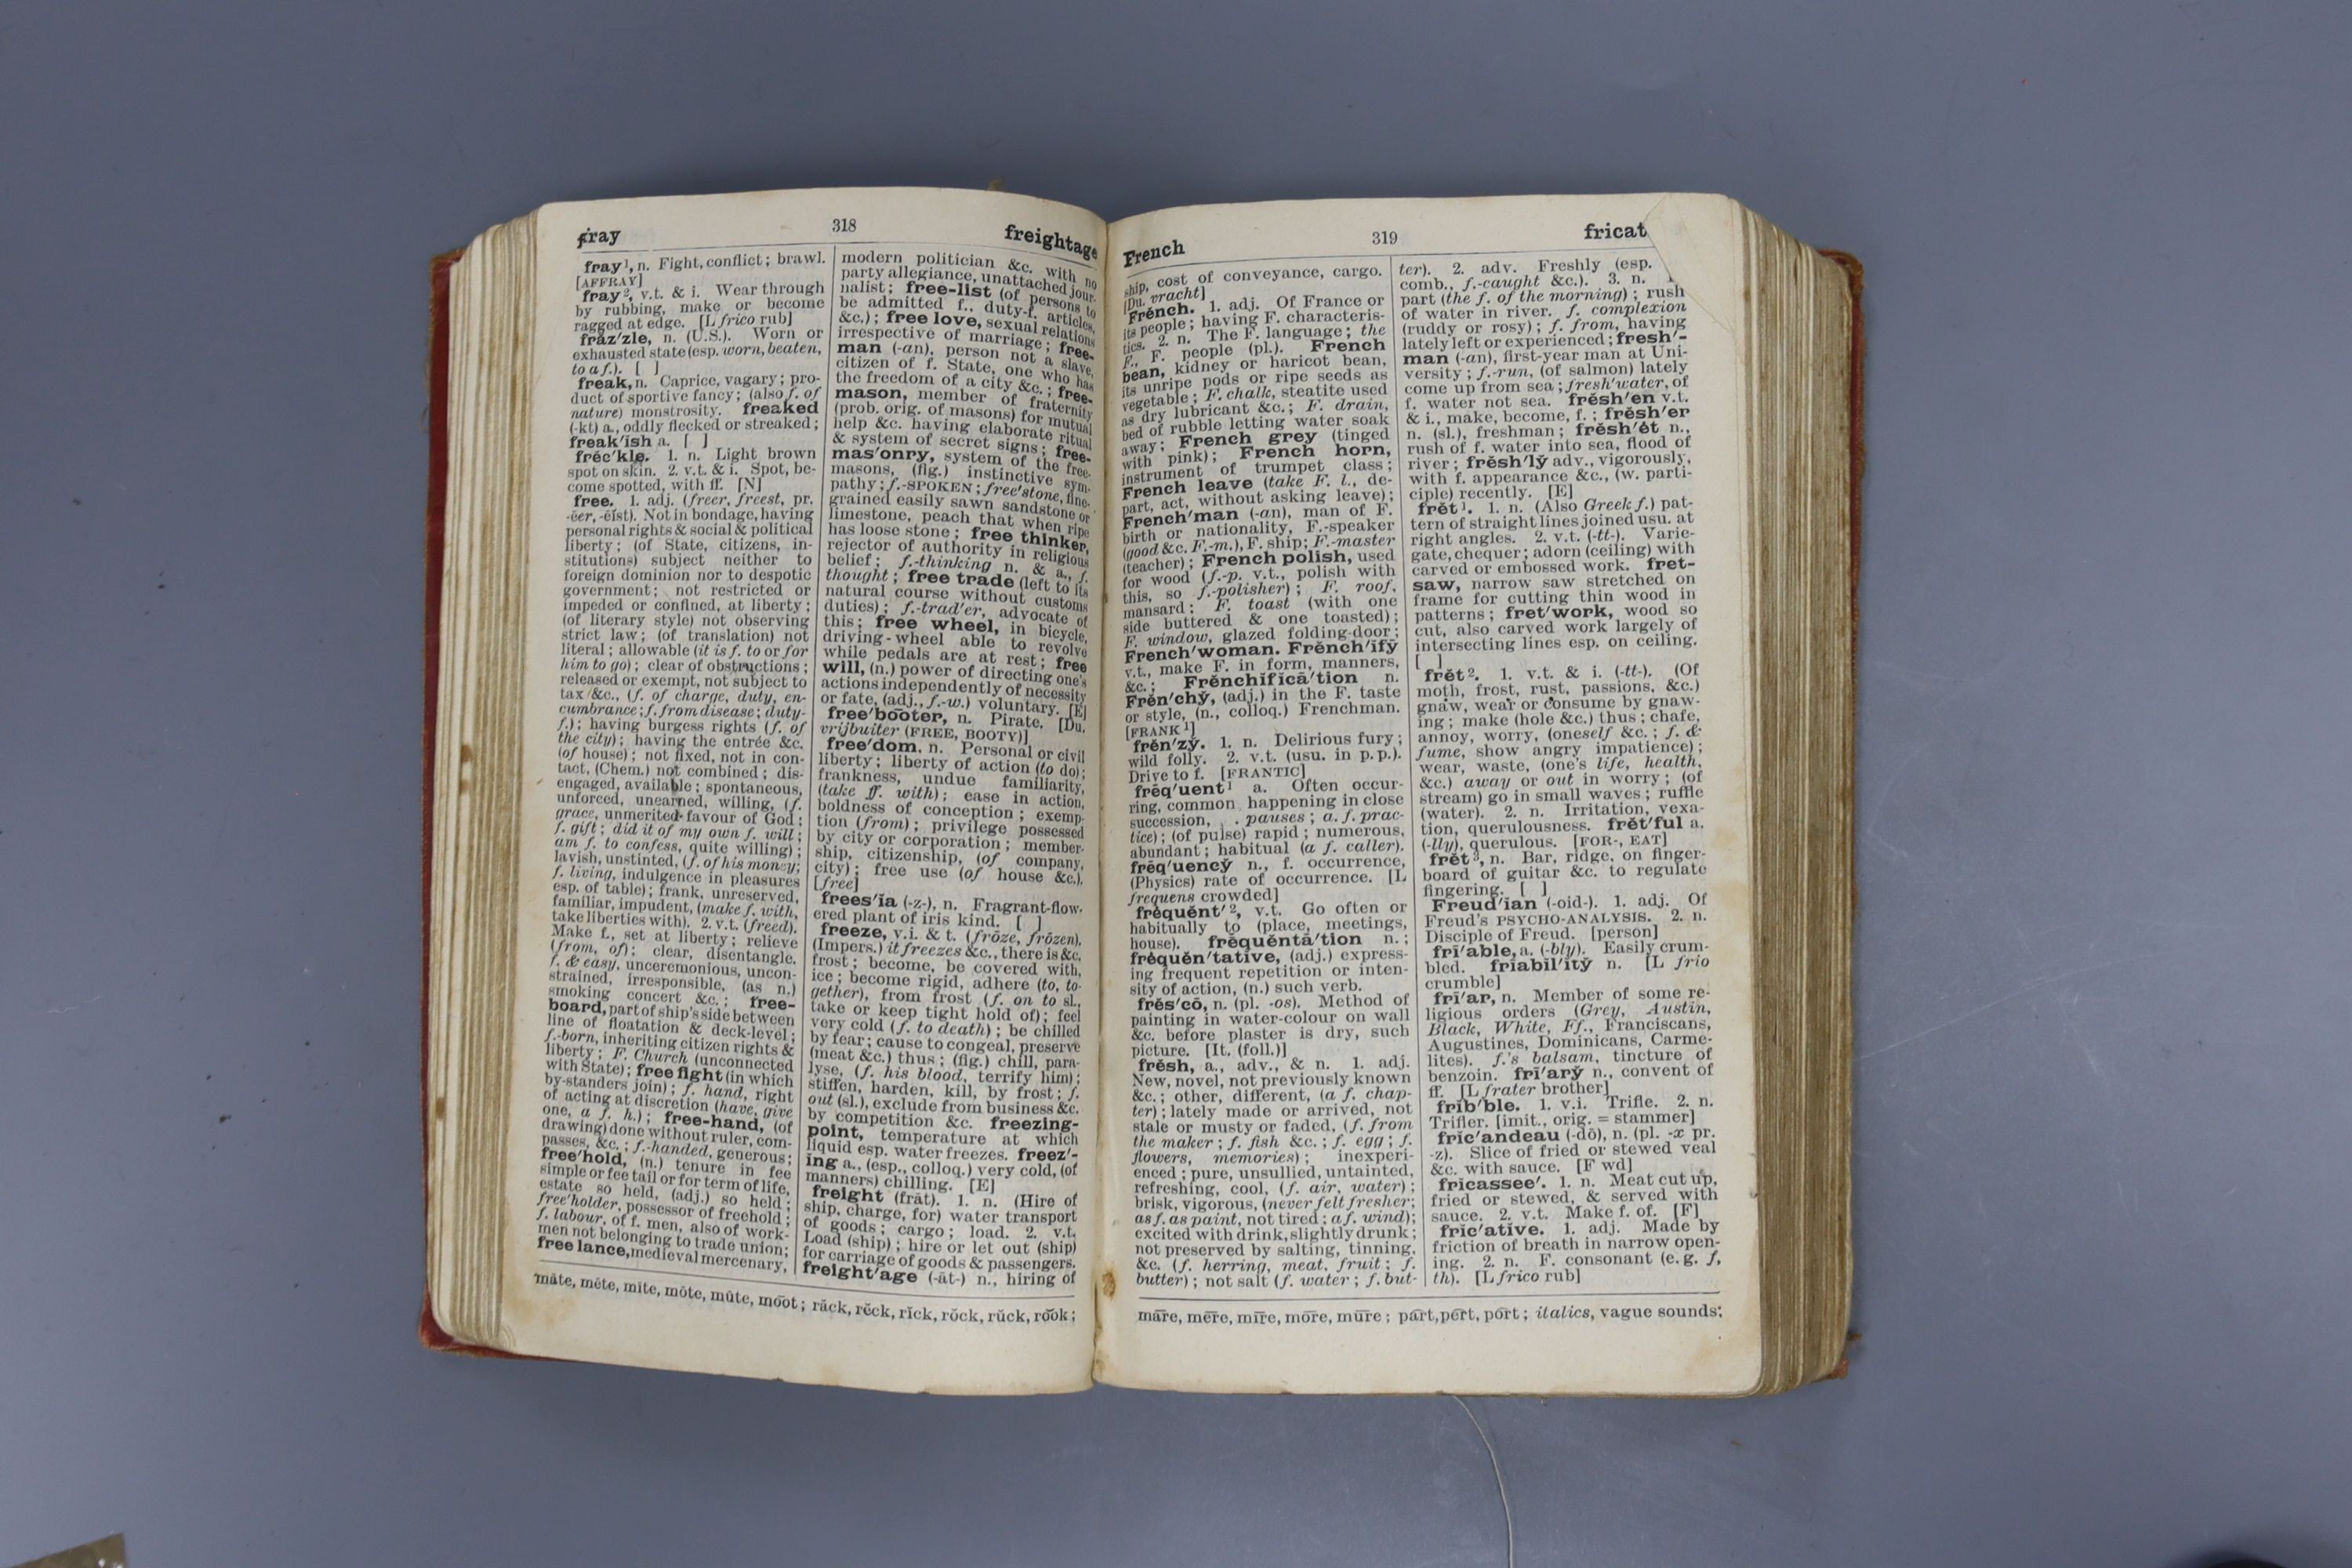 fray 318 freightage
fray¹, n. Fight, conflict; brawl.
[AFFRAY]
fray², v.t. & i. Wear through
by rubbing, make or become
ragged at edge. [L frico rub]
frăz'zle, n. (U.S.). Worn or
exhausted state (esp. worn, beaten,
to a f.). [ ]
freak, n. Caprice, vagary; pro-
duct of sportive fancy; (also f. of
nature) monstrosity. freaked
(-kt) a., oddly flecked or streaked;
freak'ish a. [ ]
frĕc'kle. 1. n. Light brown
spot on skin. 2. v.t. & i. Spot, be-
come spotted, with ff. [N]
free. 1. adj. (freer, freest, pr.
-ēer, -ēĭst). Not in bondage, having
personal rights & social & political
liberty; (of State, citizens, in-
stitutions) subject neither to
foreign dominion nor to despotic
government; not restricted or
impeded or confined, at liberty;
(of literary style) not observing
strict law; (of translation) not
literal; allowable (it is f. to or for
him to go); clear of obstructions;
released or exempt, not subject to
tax &c., (f. of charge, duty, en-
cumbrance; f. from disease; duty-
f.); having burgess rights (f. of
the city); having the entrée &c.
(of house); not fixed, not in con-
tact, (Chem.) not combined; dis-
engaged, available; spontaneous,
unforced, unearned, willing, (f.
grace, unmerited favour of God;
f. gift; did it of my own f. will;
am f. to confess, quite willing);
lavish, unstinted, (f. of his money;
f. living, indulgence in pleasures
esp. of table); frank, unreserved,
familiar, impudent, (make f. with,
take liberties with). 2. v.t. (freed).
Make f., set at liberty; relieve
(from, of); clear, disentangle.
f. & easy, unceremonious, uncon-
strained, irresponsible, (as n.)
smoking concert &c.; free-
board, part of ship's side between
line of floatation & deck-level;
f.-born, inheriting citizen rights &
liberty; F. Church (unconnected
with State); free fight (in which
by-standers join); f. hand, right
of acting at discretion (have, give
one, a f. h.); free-hand, (of
drawing) done without ruler, com-
passes, &c.; f.-handed, generous;
free'hold, (n.) tenure in fee
simple or fee tail or for term of life,
estate so held, (adj.) so held;
free'holder, possessor of freehold;
f. labour, of f. men, also of work-
men not belonging to trade union;
free lance, medieval mercenary,
modern politician &c. with no
party allegiance, unattached jour-
nalist; free-list (of persons to
be admitted f., duty-f. articles,
&c.); free love, sexual relations
irrespective of marriage; free-
man (-an), person not a slave,
citizen of f. State, one who has
the freedom of a city &c.; free-
mason, member of fraternity
(prob. orig. of masons) for mutual
help &c. having elaborate ritual
& system of secret signs; free-
mas'onry, system of the free-
masons, (fig.) instinctive sym-
pathy; f.-SPOKEN; free'stone, fine-
grained easily sawn sandstone or
limestone, peach that when ripe
has loose stone; free thinker,
rejector of authority in religious
belief; f.-thinking n. & a., f.
thought; free trade (left to its
natural course without customs
duties); f.-trad'er, advocate of
this; free wheel, in bicycle,
driving-wheel able to revolve
while pedals are at rest; free
will, (n.) power of directing one's
actions independently of necessity
or fate, (adj., f.-w.) voluntary. [E]
free'booter, n. Pirate. [Du.
vrijbuiter (FREE, BOOTY)]
free'dom, n. Personal or civil
liberty; liberty of action (to do);
frankness, undue familiarity,
(take ff. with); ease in action,
boldness of conception; exemp-
tion (from); privilege possessed
by city or corporation; member-
ship, citizenship, (of company,
city); free use (of house &c.).
[free]
frees'ĭa (-z-), n. Fragrant-flow-
ered plant of iris kind. [ ]
freeze, v.i. & t. (frōze, frōzen).
(Impers.) it freezes &c., there is &c.
frost; become, be covered with,
ice; become rigid, adhere (to, to-
gether), from frost (f. on to sl.,
take or keep tight hold of); feel
very cold (f. to death); be chilled
by fear; cause to congeal, preserve
(meat &c.) thus; (fig.) chill, para-
lyse, (f. his blood, terrify him);
stiffen, harden, kill, by frost; f.
out (sl.), exclude from business &c.
by competition &c. freezing-
point, temperature at which
liquid esp. water freezes. freez'-
ing a., (esp., colloq.) very cold, (of
manners) chilling. [E]
freight (frāt). 1. n. (Hire of
ship, charge, for) water transport
of goods; cargo; load. 2. v.t.
Load (ship); hire or let out (ship)
for carriage of goods & passengers.
freight'age (-āt-) n., hiring of
māte, mēte, mīte, mōte, mūte, mōōt; răck, rĕck, rĭck, rŏck, rŭck, rŏŏk;
French 319 fricat
ship, cost of conveyance, cargo.
[Du. vracht]
Frĕnch. 1. adj. Of France or
its people; having F. characteris-
tics. 2. n. The F. language; the
F., F. people (pl.). French
bean, kidney or haricot bean,
its unripe pods or ripe seeds as
vegetable; F. chalk, steatite used
as dry lubricant &c.; F. drain,
bed of rubble letting water soak
away; French grey (tinged
with pink); French horn,
instrument of trumpet class;
French leave (take F. l., de-
part, act, without asking leave);
French'man (-an), man of F.
birth or nationality, F.-speaker
(good &c. F.-m.), F. ship; F.-master
(teacher); French polish, used
for wood (f.-p. v.t., polish with
this, so f.-polisher); F. roof,
mansard; F. toast (with one
side buttered & one toasted);
F. window, glazed folding-door;
French'woman. Frĕnch'ify̆
v.t., make F. in form, manners,
&c.; Frĕnchĭfĭcā'tion n.
Frĕn'chy̆, (adj.) in the F. taste
or style, (n., colloq.) Frenchman.
[FRANK¹]
frĕn'zy̆. 1. n. Delirious fury;
wild folly. 2. v.t. (usu. in p.p.).
Drive to f. [FRANTIC]
frēq'uent¹ a. Often occur-
ring, common happening in close
succession, . pauses; a. f. prac-
tice); (of pulse) rapid; numerous,
abundant; habitual (a f. caller).
frēq'uency̆ n., f. occurrence,
(Physics) rate of occurrence. [L
frequens crowded]
frėquĕnt'², v.t. Go often or
habitually to (place, meetings,
house). frĕquĕntā'tion n.;
frėquĕn'tatĭve, (adj.) express-
ing frequent repetition or inten-
sity of action, (n.) such verb.
frĕs'cō, n. (pl. -os). Method of
painting in water-colour on wall
&c. before plaster is dry, such
picture. [It. (foll.)]
frĕsh, a., adv., & n. 1. adj.
New, novel, not previously known
&c.; other, different, (a f. chap-
ter); lately made or arrived, not
stale or musty or faded, (f. from
the maker; f. fish &c.; f. egg; f.
flowers, memories); inexperi-
enced; pure, unsullied, untainted,
refreshing, cool, (f. air, water);
brisk, vigorous, (never felt fresher;
as f. as paint, not tired; a f. wind);
excited with drink, slightly drunk;
not preserved by salting, tinning,
&c. (f. herring, meat, fruit; f.
butter); not salt (f. water; f. but-
ter). 2. adv. Freshly (esp.
comb., f.-caught &c.). 3. n.
part (the f. of the morning); rush
of water in river. f. complexion
(ruddy or rosy); f. from, having
lately left or experienced; fresh'-
man (-an), first-year man at Uni-
versity; f.-run, (of salmon) lately
come up from sea; fresh'water, of
f. water not sea. frĕsh'en v.t.
& i., make, become, f.; frĕsh'er
n. (sl.), freshman; frĕsh'ĕt n.,
rush of f. water into sea, flood of
river; frĕsh'ly̆ adv., vigorously,
with f. appearance &c., (w. parti-
ciple) recently. [E]
frĕt¹. 1. n. (Also Greek f.) pat-
tern of straight lines joined usu. at
right angles. 2. v.t. (-tt-). Varie-
gate, chequer; adorn (ceiling) with
carved or embossed work. fret-
saw, narrow saw stretched on
frame for cutting thin wood in
patterns; fret'work, wood so
cut, also carved work largely of
intersecting lines esp. on ceiling.
[ ]
frĕt². 1. v.t. & i. (-tt-). (Of
moth, frost, rust, passions, &c.)
gnaw, wear or consume by gnaw-
ing; make (hole &c.) thus; chafe,
annoy, worry, (oneself &c.; f. &
fume, show angry impatience);
wear, waste, (one's life, health,
&c.) away or out in worry; (of
stream) go in small waves; ruffle
(water). 2. n. Irritation, vexa-
tion, querulousness. frĕt'ful a.
(-lly), querulous. [FOR-, EAT]
frĕt³, n. Bar, ridge, on finger-
board of guitar &c. to regulate
fingering. [ ]
Freud'ian (-oid-). 1. adj. Of
Freud's PSYCHO-ANALYSIS. 2. n.
Disciple of Freud. [person]
frī'able, a. (-bly). Easily crum-
bled. frīabĭl'ĭty̆ n. [L frio
crumble]
frī'ar, n. Member of some re-
ligious orders (Grey, Austin,
Black, White, Ff., Franciscans,
Augustines, Dominicans, Carme-
lites). f.'s balsam, tincture of
benzoin. frī'ary̆ n., convent of
ff. [L frater brother]
frĭb'ble. 1. v.i. Trifle. 2. n.
Trifler. [imit., orig. = stammer]
frĭc'andeau (-dō), n. (pl. -x pr.
-z). Slice of fried or stewed veal
&c. with sauce. [F wd]
fricassee'. 1. n. Meat cut up,
fried or stewed, & served with
sauce. 2. v.t. Make f. of. [F]
frĭc'atĭve. 1. adj. Made by
friction of breath in narrow open-
ing. 2. n. F. consonant (e.g. f,
th). [L frico rub]
māre, mēre, mīre, mōre, mūre; pārt, pērt, pōrt; italics, vague sounds.